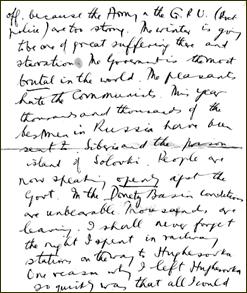 off, because the Army & the G.P.U. (Secret
Police) are too strong. The winter is going
to be one of great suffering there and
starvation. The Government is the most
brutal in the world. The peasants
hate the Communists. This year
thousands and thousands of the
best men in Russia have been
sent to Siberia and the prison
island of Solovki. People are
now speaking openly agst the
Govt. In the Donetz Basin conditions
are unbearable. Thousands are
leaving. I shall never forget
the night I spent in railway
station on the way to Hughesovka.
One reason why I left Hughesovka
so quickly was that all I could